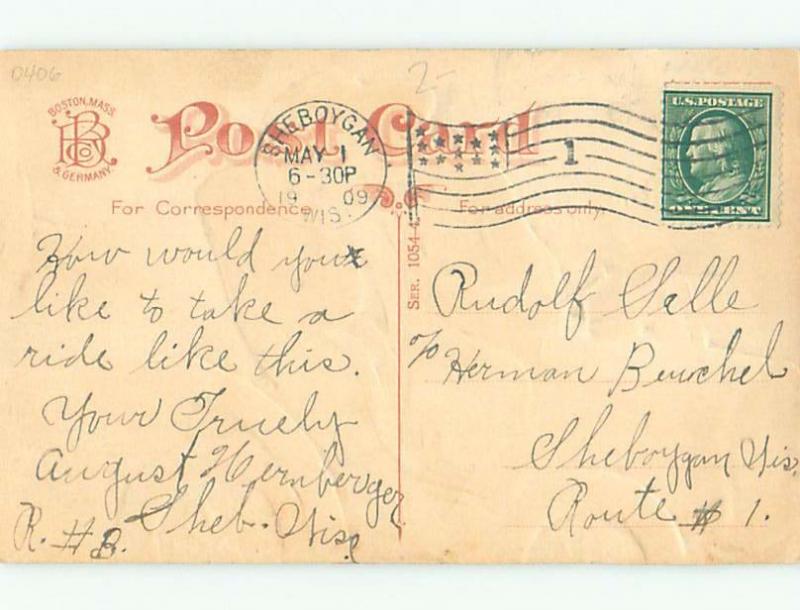 0406
2-
BOSTON, MASS.
& GERMANY.
Post Card
SHEBOYGAN
MAY 1
6-30P
19 09
WIS.
1
U.S. POSTAGE
ONE CENT
For Correspondence
For address only.
SER. 1054
How would you
like to take a
ride like this.
Your Truely
August Hernberger
R. # 3. Sheb. Wis.
Rudolf Salle
c/o Herman Beuchel
Sheboygan Wis.
Route # 1.